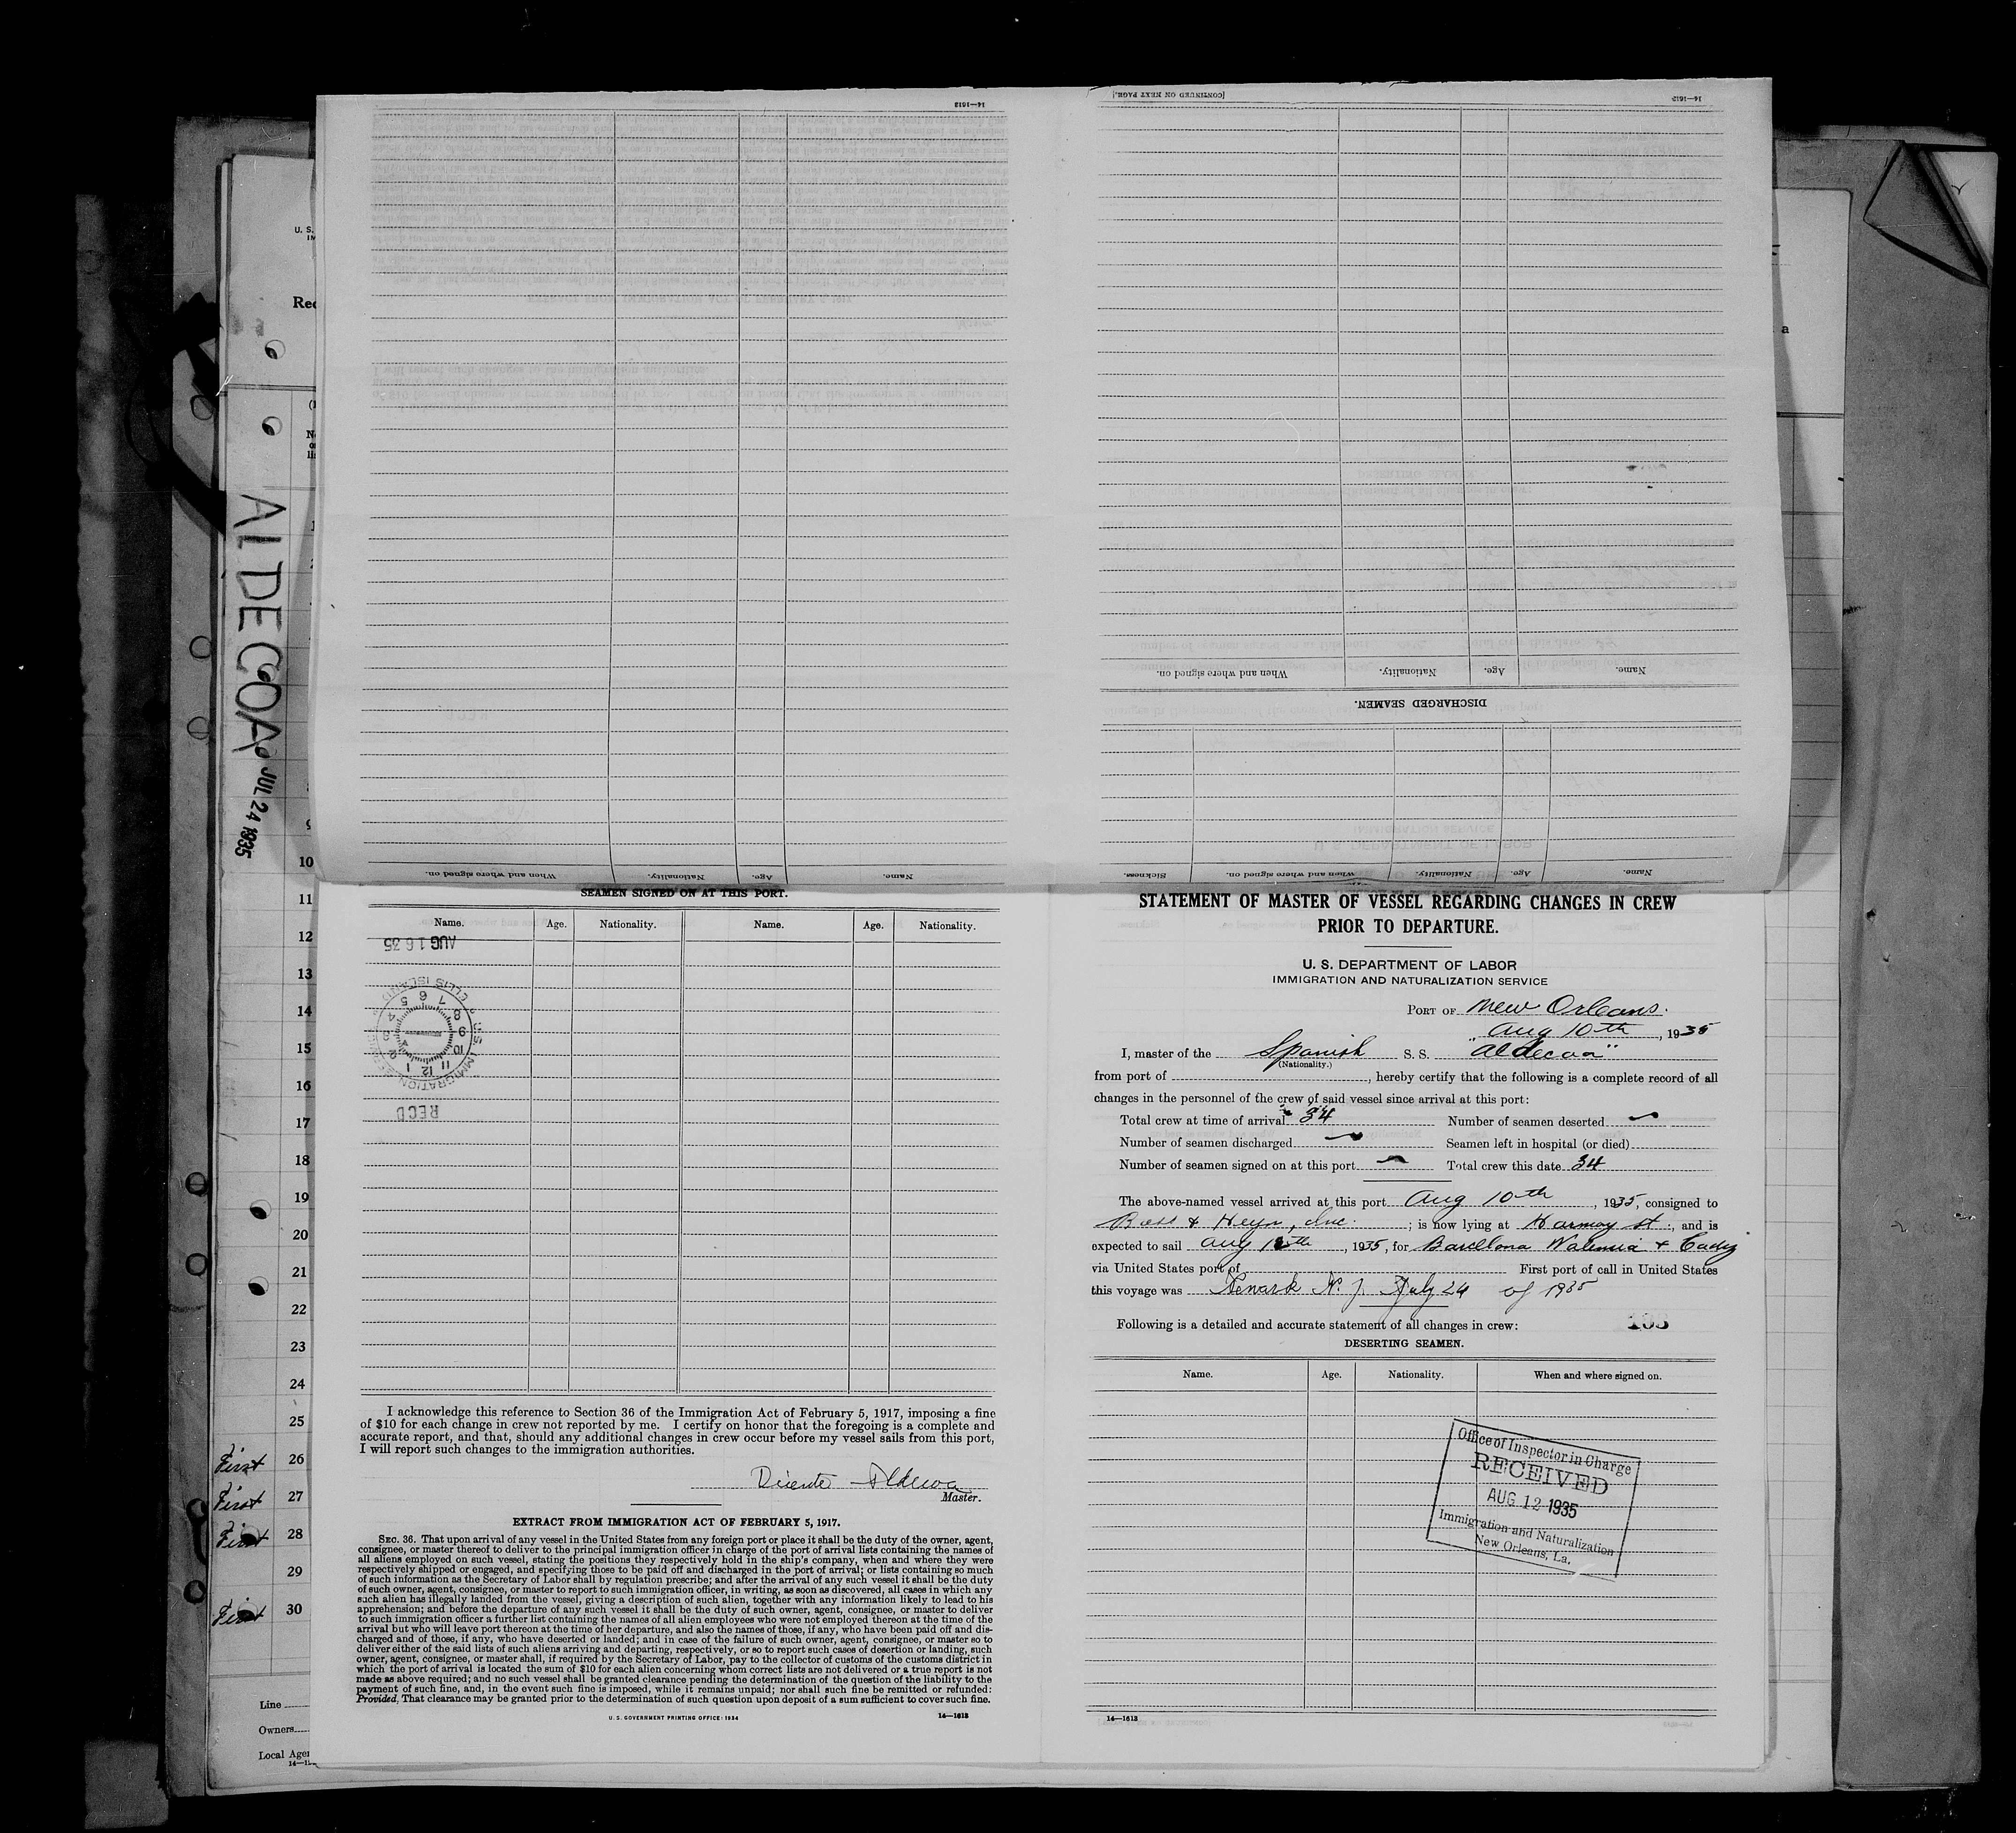 14—1613
[CONTINUED ON NEXT PAGE.]
14—1613
When and where signed on.
Nationality.
Age.
Name.
DISCHARGED SEAMEN.
When and where signed on.
Nationality.
Age.
Name.
Sickness.
When and where signed on.
Nationality.
Age.
Name.
U. S.
Rec
ALDECOA
JUL 24 1935
10
11
12
13
14
15
16
17
18
19
20
21
22
23
24
25
First 26
First 27
First 28
29
First 30
Line
Owners
Local Age
SEAMEN SIGNED ON AT THIS PORT.
Name. Age. Nationality. Name. Age. Nationality.
AUG 16 35
ELLIS ISLAND
U.S. IMMIGRATION
RECD
I acknowledge this reference to Section 36 of the Immigration Act of February 5, 1917, imposing a fine
of $10 for each change in crew not reported by me. I certify on honor that the foregoing is a complete and
accurate report, and that, should any additional changes in crew occur before my vessel sails from this port,
I will report such changes to the immigration authorities.
Master.
EXTRACT FROM IMMIGRATION ACT OF FEBRUARY 5, 1917.
SEC. 36. That upon arrival of any vessel in the United States from any foreign port or place it shall be the duty of the owner, agent,
consignee, or master thereof to deliver to the principal immigration officer in charge of the port of arrival lists containing the names of
all aliens employed on such vessel, stating the positions they respectively hold in the ship's company, when and where they were
respectively shipped or engaged, and specifying those to be paid off and discharged in the port of arrival; or lists containing so much
of such information as the Secretary of Labor shall by regulation prescribe; and after the arrival of any such vessel it shall be the duty
of such owner, agent, consignee, or master to report to such immigration officer, in writing, as soon as discovered, all cases in which any
such alien has illegally landed from the vessel, giving a description of such alien, together with any information likely to lead to his
apprehension; and before the departure of any such vessel it shall be the duty of such owner, agent, consignee, or master to deliver
to such immigration officer a further list containing the names of all alien employees who were not employed thereon at the time of the
arrival but who will leave port thereon at the time of her departure, and also the names of those, if any, who have been paid off and dis-
charged and of those, if any, who have deserted or landed; and in case of the failure of such owner, agent, consignee, or master so to
deliver either of the said lists of such aliens arriving and departing, respectively, or so to report such cases of desertion or landing, such
owner, agent, consignee, or master shall, if required by the Secretary of Labor, pay to the collector of customs of the customs district in
which the port of arrival is located the sum of $10 for each alien concerning whom correct lists are not delivered or a true report is not
made as above required; and no such vessel shall be granted clearance pending the determination of the question of the liability to the
payment of such fine, and, in the event such fine is imposed, while it remains unpaid; nor shall such fine be remitted or refunded:
Provided, That clearance may be granted prior to the determination of such question upon deposit of a sum sufficient to cover such fine.
U. S. GOVERNMENT PRINTING OFFICE: 1934 14—1613
STATEMENT OF MASTER OF VESSEL REGARDING CHANGES IN CREW
PRIOR TO DEPARTURE.
U. S. DEPARTMENT OF LABOR
IMMIGRATION AND NATURALIZATION SERVICE
PORT OF New Orleans.
Aug 10th, 1935
I, master of the Spanish S. S. "Aldecoa"
(Nationality.)
from port of , hereby certify that the following is a complete record of all
changes in the personnel of the crew of said vessel since arrival at this port:
Total crew at time of arrival 34 Number of seamen deserted
Number of seamen discharged Seamen left in hospital (or died)
Number of seamen signed on at this port Total crew this date 34
The above-named vessel arrived at this port Aug 10th, 1935, consigned to
& Heyn, Inc. ; is now lying at Harmony st., and is
expected to sail Aug , 1935, for Barcelona Valencia & Cadiz
via United States port of First port of call in United States
this voyage was Newark N. J. July 24 of 1935
Following is a detailed and accurate statement of all changes in crew:
DESERTING SEAMEN.
Name. Age. Nationality. When and where signed on.
Office of Inspector in Charge
RECEIVED
AUG 12 1935
Immigration and Naturalization
New Orleans, La.
14—1613